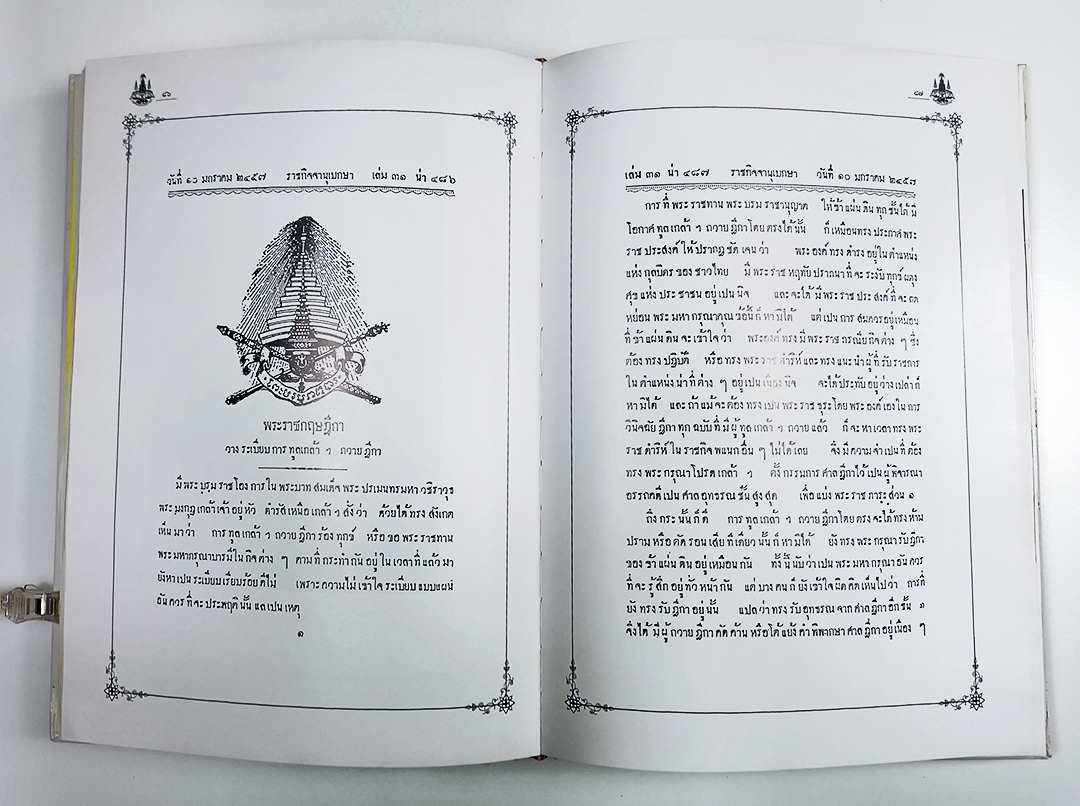 ๘๖
วันที่ ๑๐ มกราคม ๒๔๕๗ ราชกิจจานุเบกษา เล่ม ๓๑ น่า ๔๘๖
พระบรมราชโองการ
พระราชกฤษฎีกา
วางระเบียบการทูลเกล้า ฯ ถวายฎีกา
มีพระบรมราชโองการในพระบาทสมเด็จพระปรเมนทรมหาวชิราวุธ
พระมงกุฎเกล้าเจ้าอยู่หัว ดำรัสเหนือเกล้า ฯ สั่งว่า ด้วยได้ทรงสังเกต
เห็นมาว่า การทูลเกล้า ฯ ถวายฎีการ้องทุกข์ หรือขอพระราชทาน
พระมหากรุณาบารมีในกิจต่าง ๆ ตามที่กระทำกันอยู่ในเวลาที่แล้วมา
ยังหาเปนระเบียบเรียบร้อยดีไม่ เพราะความไม่เข้าใจระเบียบแบบแผน
อันควรที่จะประพฤตินั้น แลเปนเหตุ
๑
๘๗
เล่ม ๓๑ น่า ๔๘๗ ราชกิจจานุเบกษา วันที่ ๑๐ มกราคม ๒๔๕๗
การที่พระราชทานพระบรมราชานุญาต ให้ข้าแผ่นดินทุกชั้นได้มี
โอกาศทูลเกล้า ฯ ถวายฎีกาโดยตรงได้นั้น ก็เหมือนทรงประกาศพระ
ราชประสงค์ให้ปรากฏชัดเจนว่า พระองค์ทรงดำรงอยู่ในตำแหน่ง
แห่งกุลบิดรของชาวไทย มีพระราชหฤทัยปราถนาที่จะระงับทุกข์ผดุง
ศุขแห่งประชาชนอยู่เปนนิจ และจะได้มีพระราชประสงค์ที่จะลด
หย่อนพระมหากรุณาคุณข้อนี้ก็หามิได้ แต่เปนการสมควรอยู่เหมือน
ที่ข้าแผ่นดินจะเข้าใจว่า พระองค์ทรงมีพระราชกรณียกิจต่าง ๆ ซึ่ง
ต้องทรงปฏิบัติ หรือทรงพระราชดำริห์และทรงแนะนำผู้ที่รับราชการ
ในตำแหน่งน่าที่ต่าง ๆ อยู่เปนเนืองนิจ จะได้ประทับอยู่ว่างเปล่าก็
หามิได้ และถ้าแม้จะต้องทรงเปนพระราชธุระโดยพระองค์เองในการ
วินิจฉัยฎีกาทุกฉบับที่มีผู้ทูลเกล้า ฯ ถวายแล้ว ก็จะหาเวลาทรงพระ
ราชดำริห์ในราชกิจพแนกอื่น ๆ ไม่ได้เลย จึ่งมีความจำเปนที่ต้อง
ทรงพระกรุณาโปรดเกล้า ฯ ตั้งกรรมการศาลฎีกาไว้เปนผู้พิจารณา
อรรถคดีเปนศาลอุทธรณ์ชั้นสูงสุด เพื่อแบ่งพระราชภาระส่วน ๑
ถึงกระนั้นก็ดี การทูลเกล้า ฯ ถวายฎีกาโดยตรงจะได้ทรงห้าม
ปรามหรือตัดรอนเสียทีเดียวนั้นก็หามิได้ ยังทรงพระกรุณารับฎีกา
ของข้าแผ่นดินอยู่เหมือนกัน ทั้งนี้นับว่าเปนพระมหากรุณาอันควร
ที่จะรู้สึกอยู่ทั่วหน้ากัน แต่บางคนก็ยังเข้าใจผิดคิดเห็นไปว่า การที่
ยังทรงรับฎีกาอยู่นั้น แปลว่าทรงรับอุทธรณจากศาลฎีกาอีกชั้น ๑
จึ่งได้มีผู้ถวายฎีกาคัดค้านหรือโต้แย้งคำพิพากษาศาลฎีกาอยู่เนือง ๆ